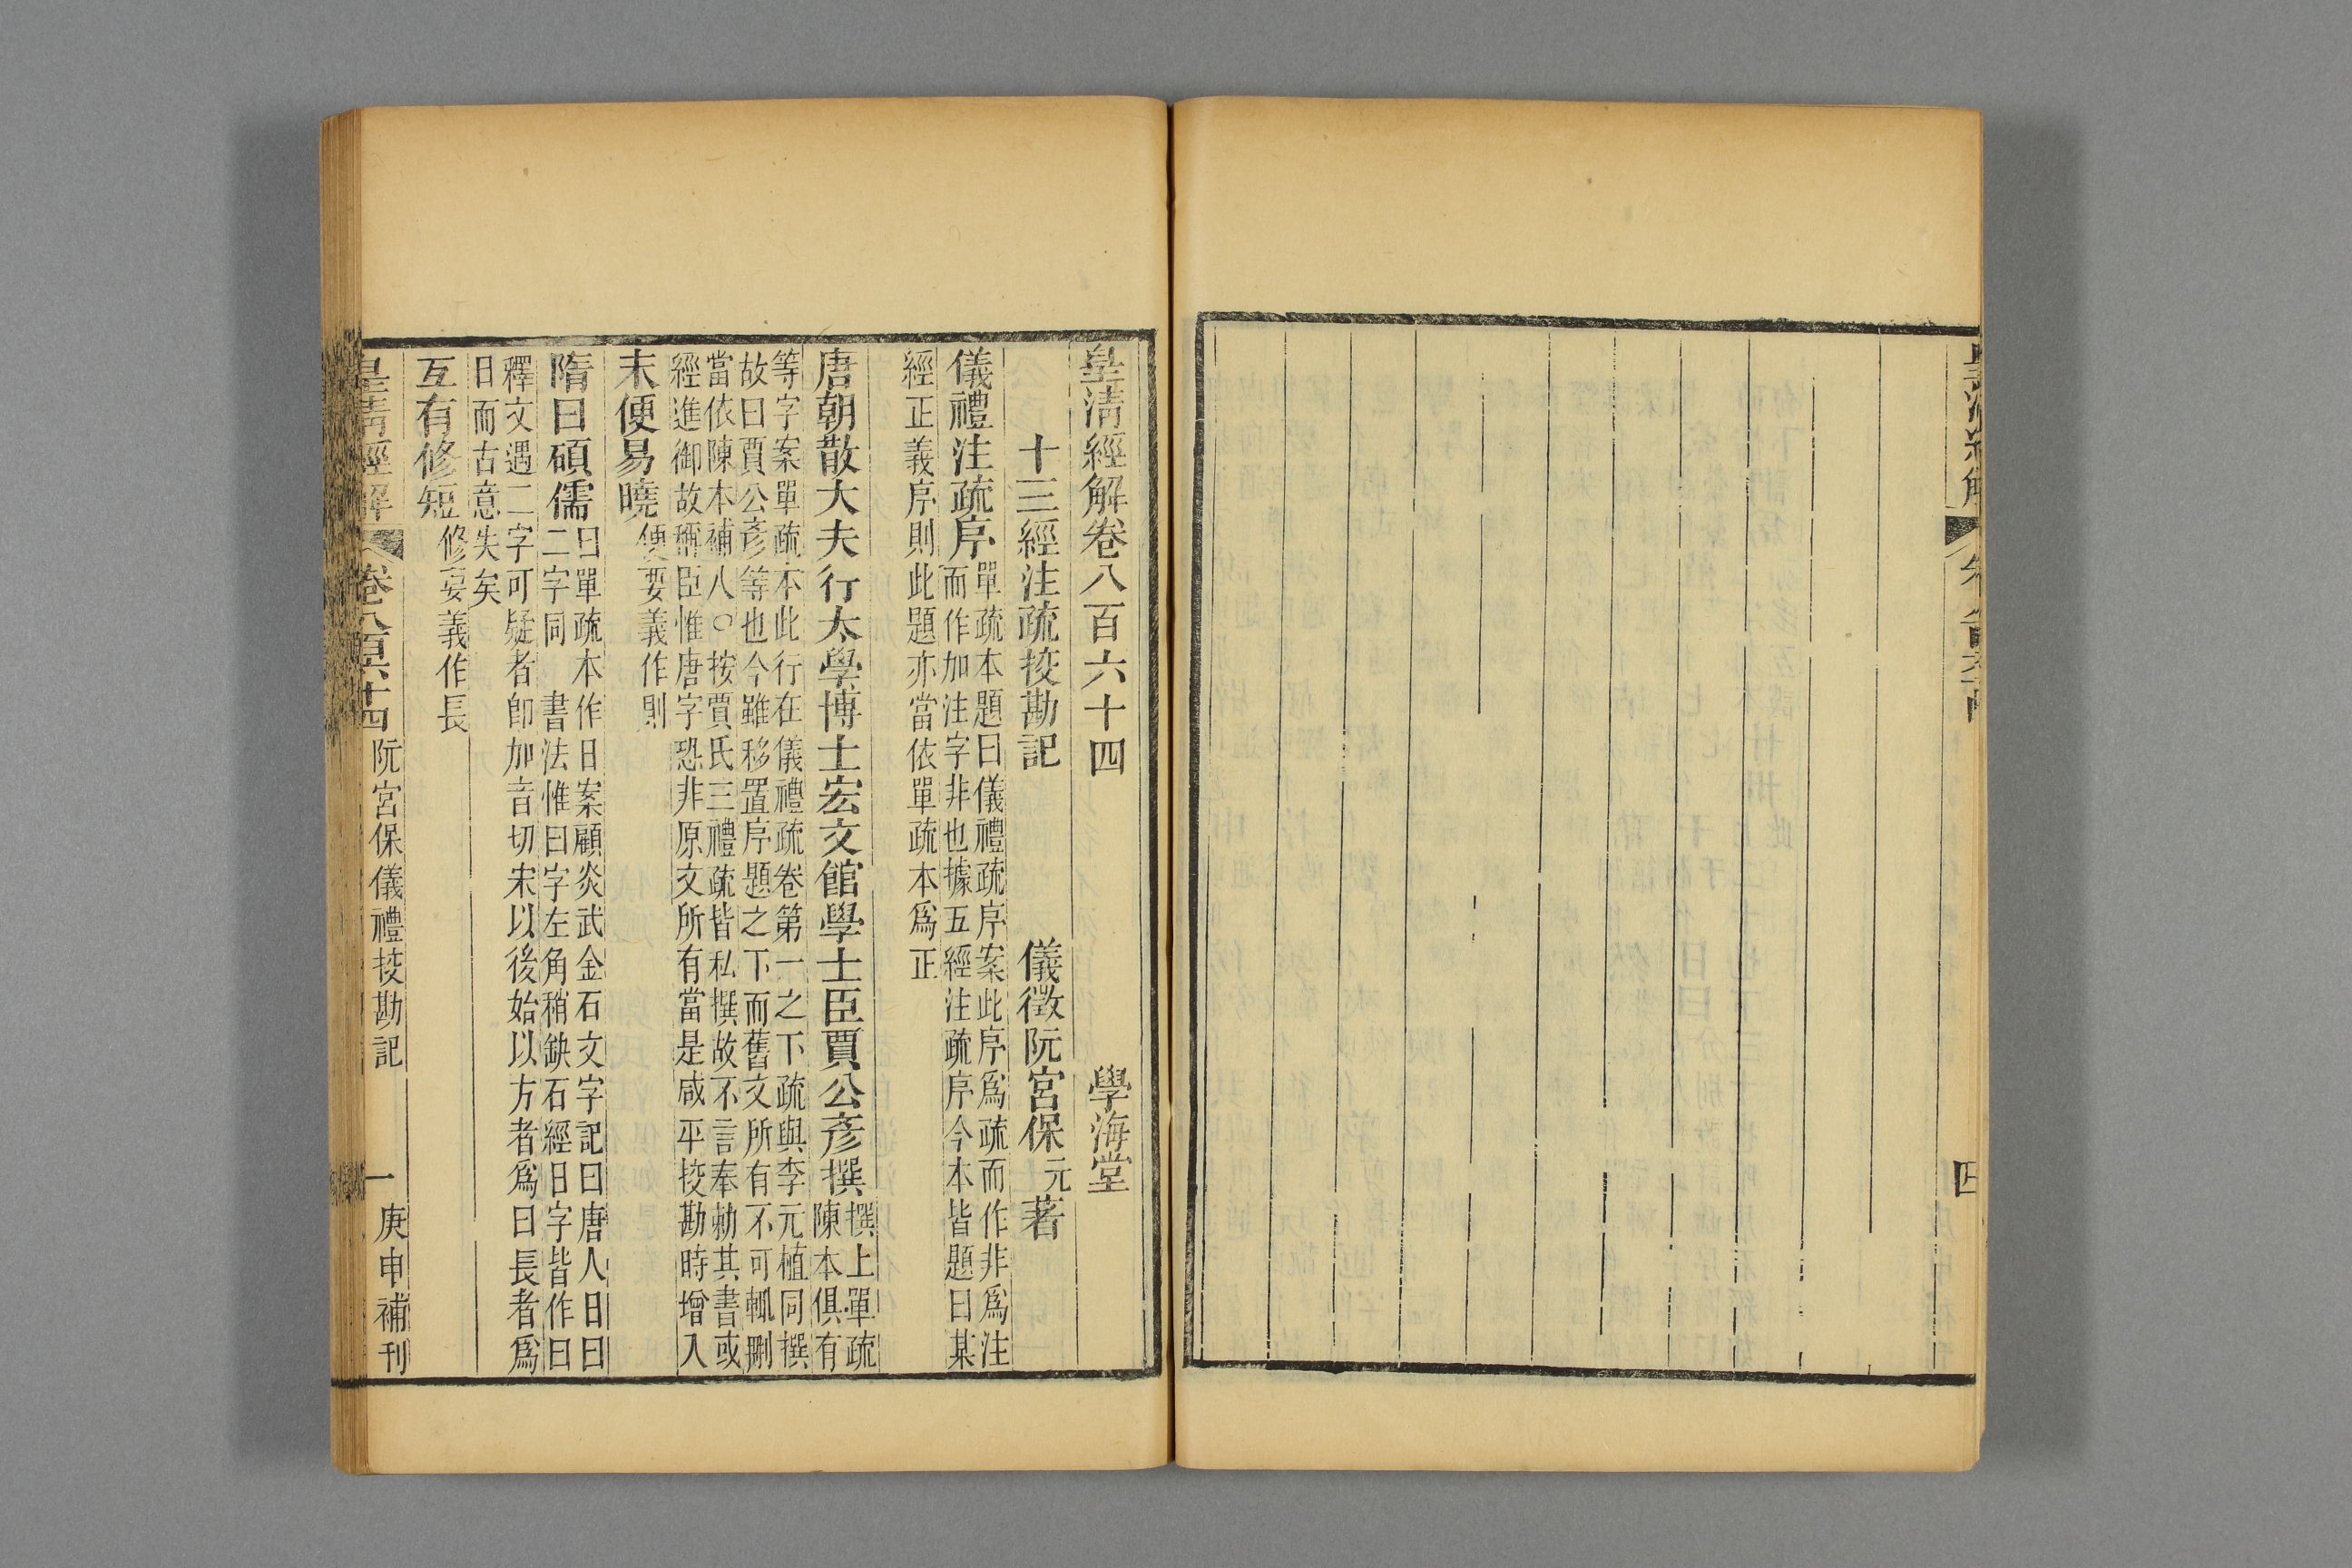 皇清經解卷八百六十四
學海堂
十三經注疏挍勘記
儀徵阮宮保元著
儀禮注疏序
單疏本題曰儀禮疏序案此序爲疏而作非爲注
而作加注字非也據五經注疏序今本皆題曰某
經正義序則此題亦當依單疏本爲正
唐朝散大夫行太學博士宏文館學士臣賈公彥撰
撰上單疏
陳本俱有
等字案單疏本此行在儀禮疏卷第一之下疏與李元植同撰
故曰賈公彥等也今雖移置序題之下而舊文所有不可輒刪
當依陳本補入○按賈氏三禮疏皆私撰故不言奉勑其書或
經進御故稱臣惟唐字恐非原文所有當是咸平挍勘時增入
末便易曉
便要義作則
隋曰碩儒
曰單疏本作日案顧炎武金石文字記曰唐人日曰
二字同
書法惟曰字左角稍缺石經日字皆作曰
釋文遇二字可疑者卽加音切宋以後始以方者爲曰長者爲
日而古意失矣
互有修短
修要義作長
皇清經解
卷八百六十四
阮宮保儀禮挍勘記
一
庚申補刊